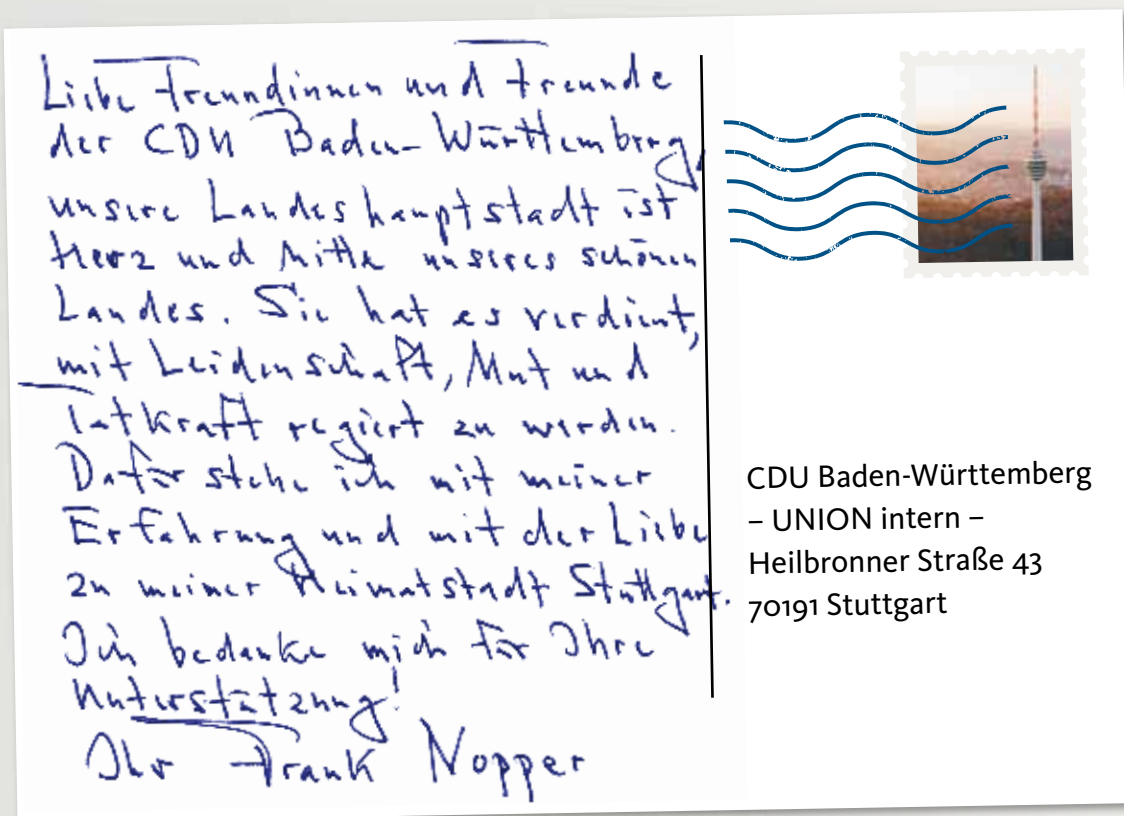 Liebe Freundinnen und Freunde
der CDU Baden-Württemberg,
unsere Landeshauptstadt ist
Herz und Mitte unseres schönen
Landes. Sie hat es verdient,
mit Leidenschaft, Mut und
Tatkraft regiert zu werden.
Dafür stehe ich mit meiner
Erfahrung und mit der Liebe
zu meiner Heimatstadt Stuttgart.
Ich bedanke mich für Ihre
Unterstützung!
Ihr Frank Nopper
CDU Baden-Württemberg
– UNION intern –
Heilbronner Straße 43
70191 Stuttgart